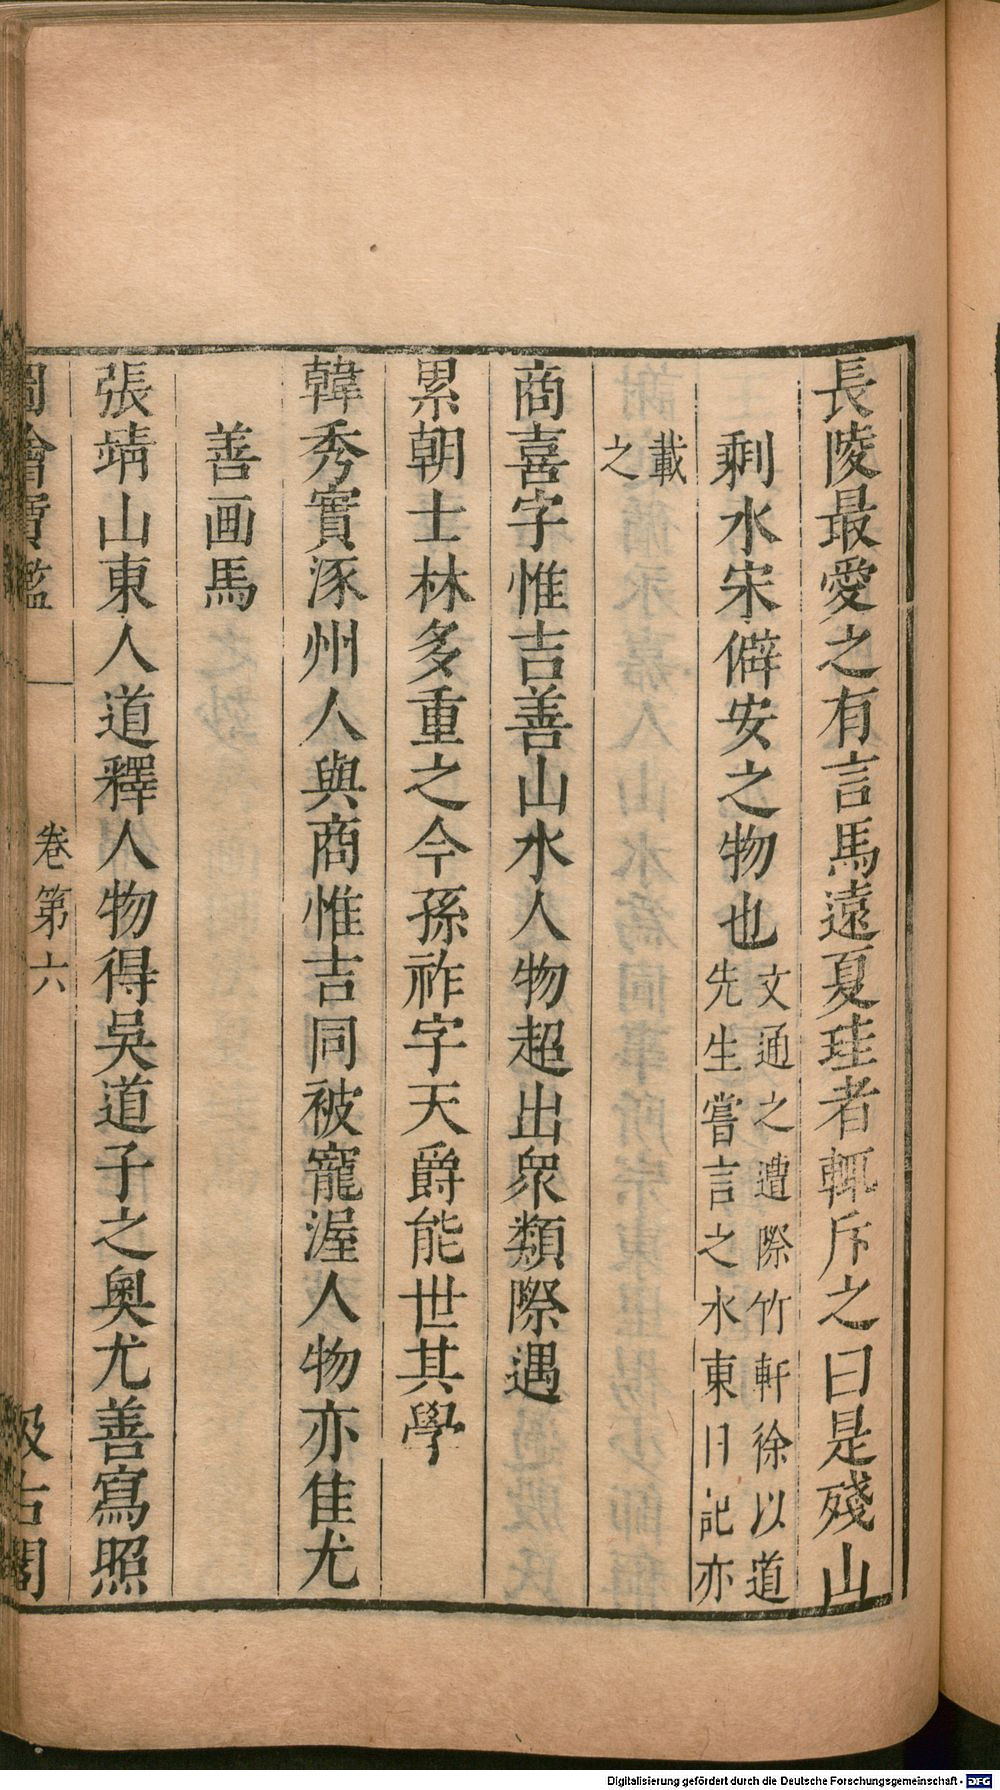 長陵最愛之有言馬遠夏珪者輒斥之曰是殘山
剩水宋僻安之物也
文通之遭際竹軒徐以道
先生嘗言之水東日記亦
載
之
商喜字惟吉善山水人物超出衆類際遇
累朝士林多重之今孫祚字天爵能世其學
韓秀實涿州人與商惟吉同被寵渥人物亦佳尤
善画馬
張靖山東人道釋人物得吳道子之奧尤善寫照
圖繪寶鑑 卷第六 汲古閣
Digitalisierung gefördert durch die Deutsche Forschungsgemeinschaft - DFG